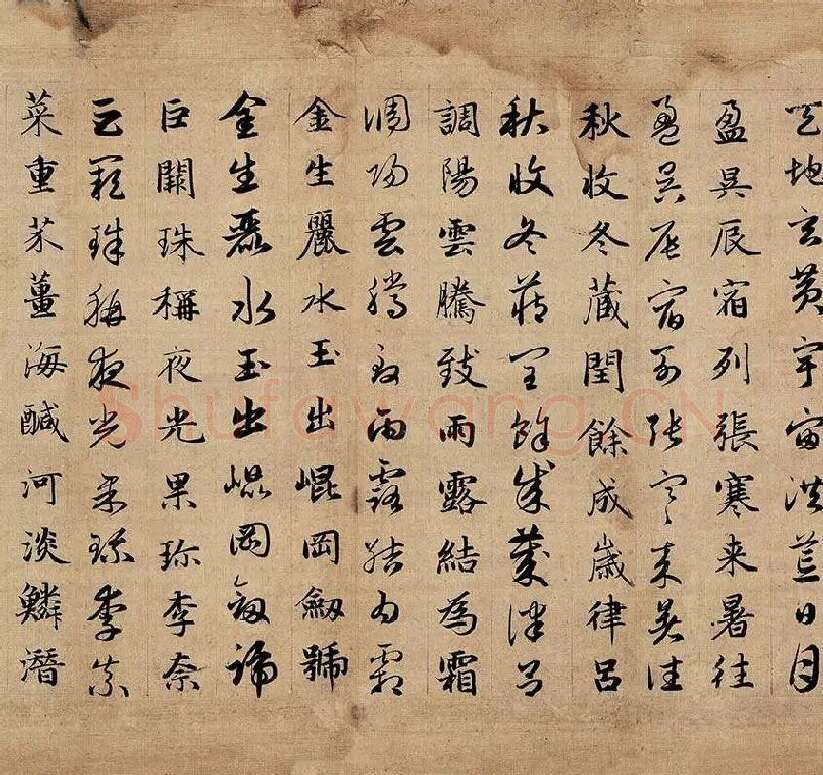 天地玄黄宇宙洪荒日月
盈昃辰宿列張寒来暑往
盈昃辰宿列張寒来暑往
秋收冬蔵閏餘成歲律呂
秋收冬蔵閏餘成歲律呂
調陽雲騰致雨露結為霜
調陽雲騰致雨露結為霜
金生麗水玉出崐岡劔號
金生麗水玉出崐岡劔號
巨闕珠稱夜光果珎李柰
巨闕珠稱夜光果珎李柰
菜重芥薑海醎河淡鱗潛
Shufawang.CN